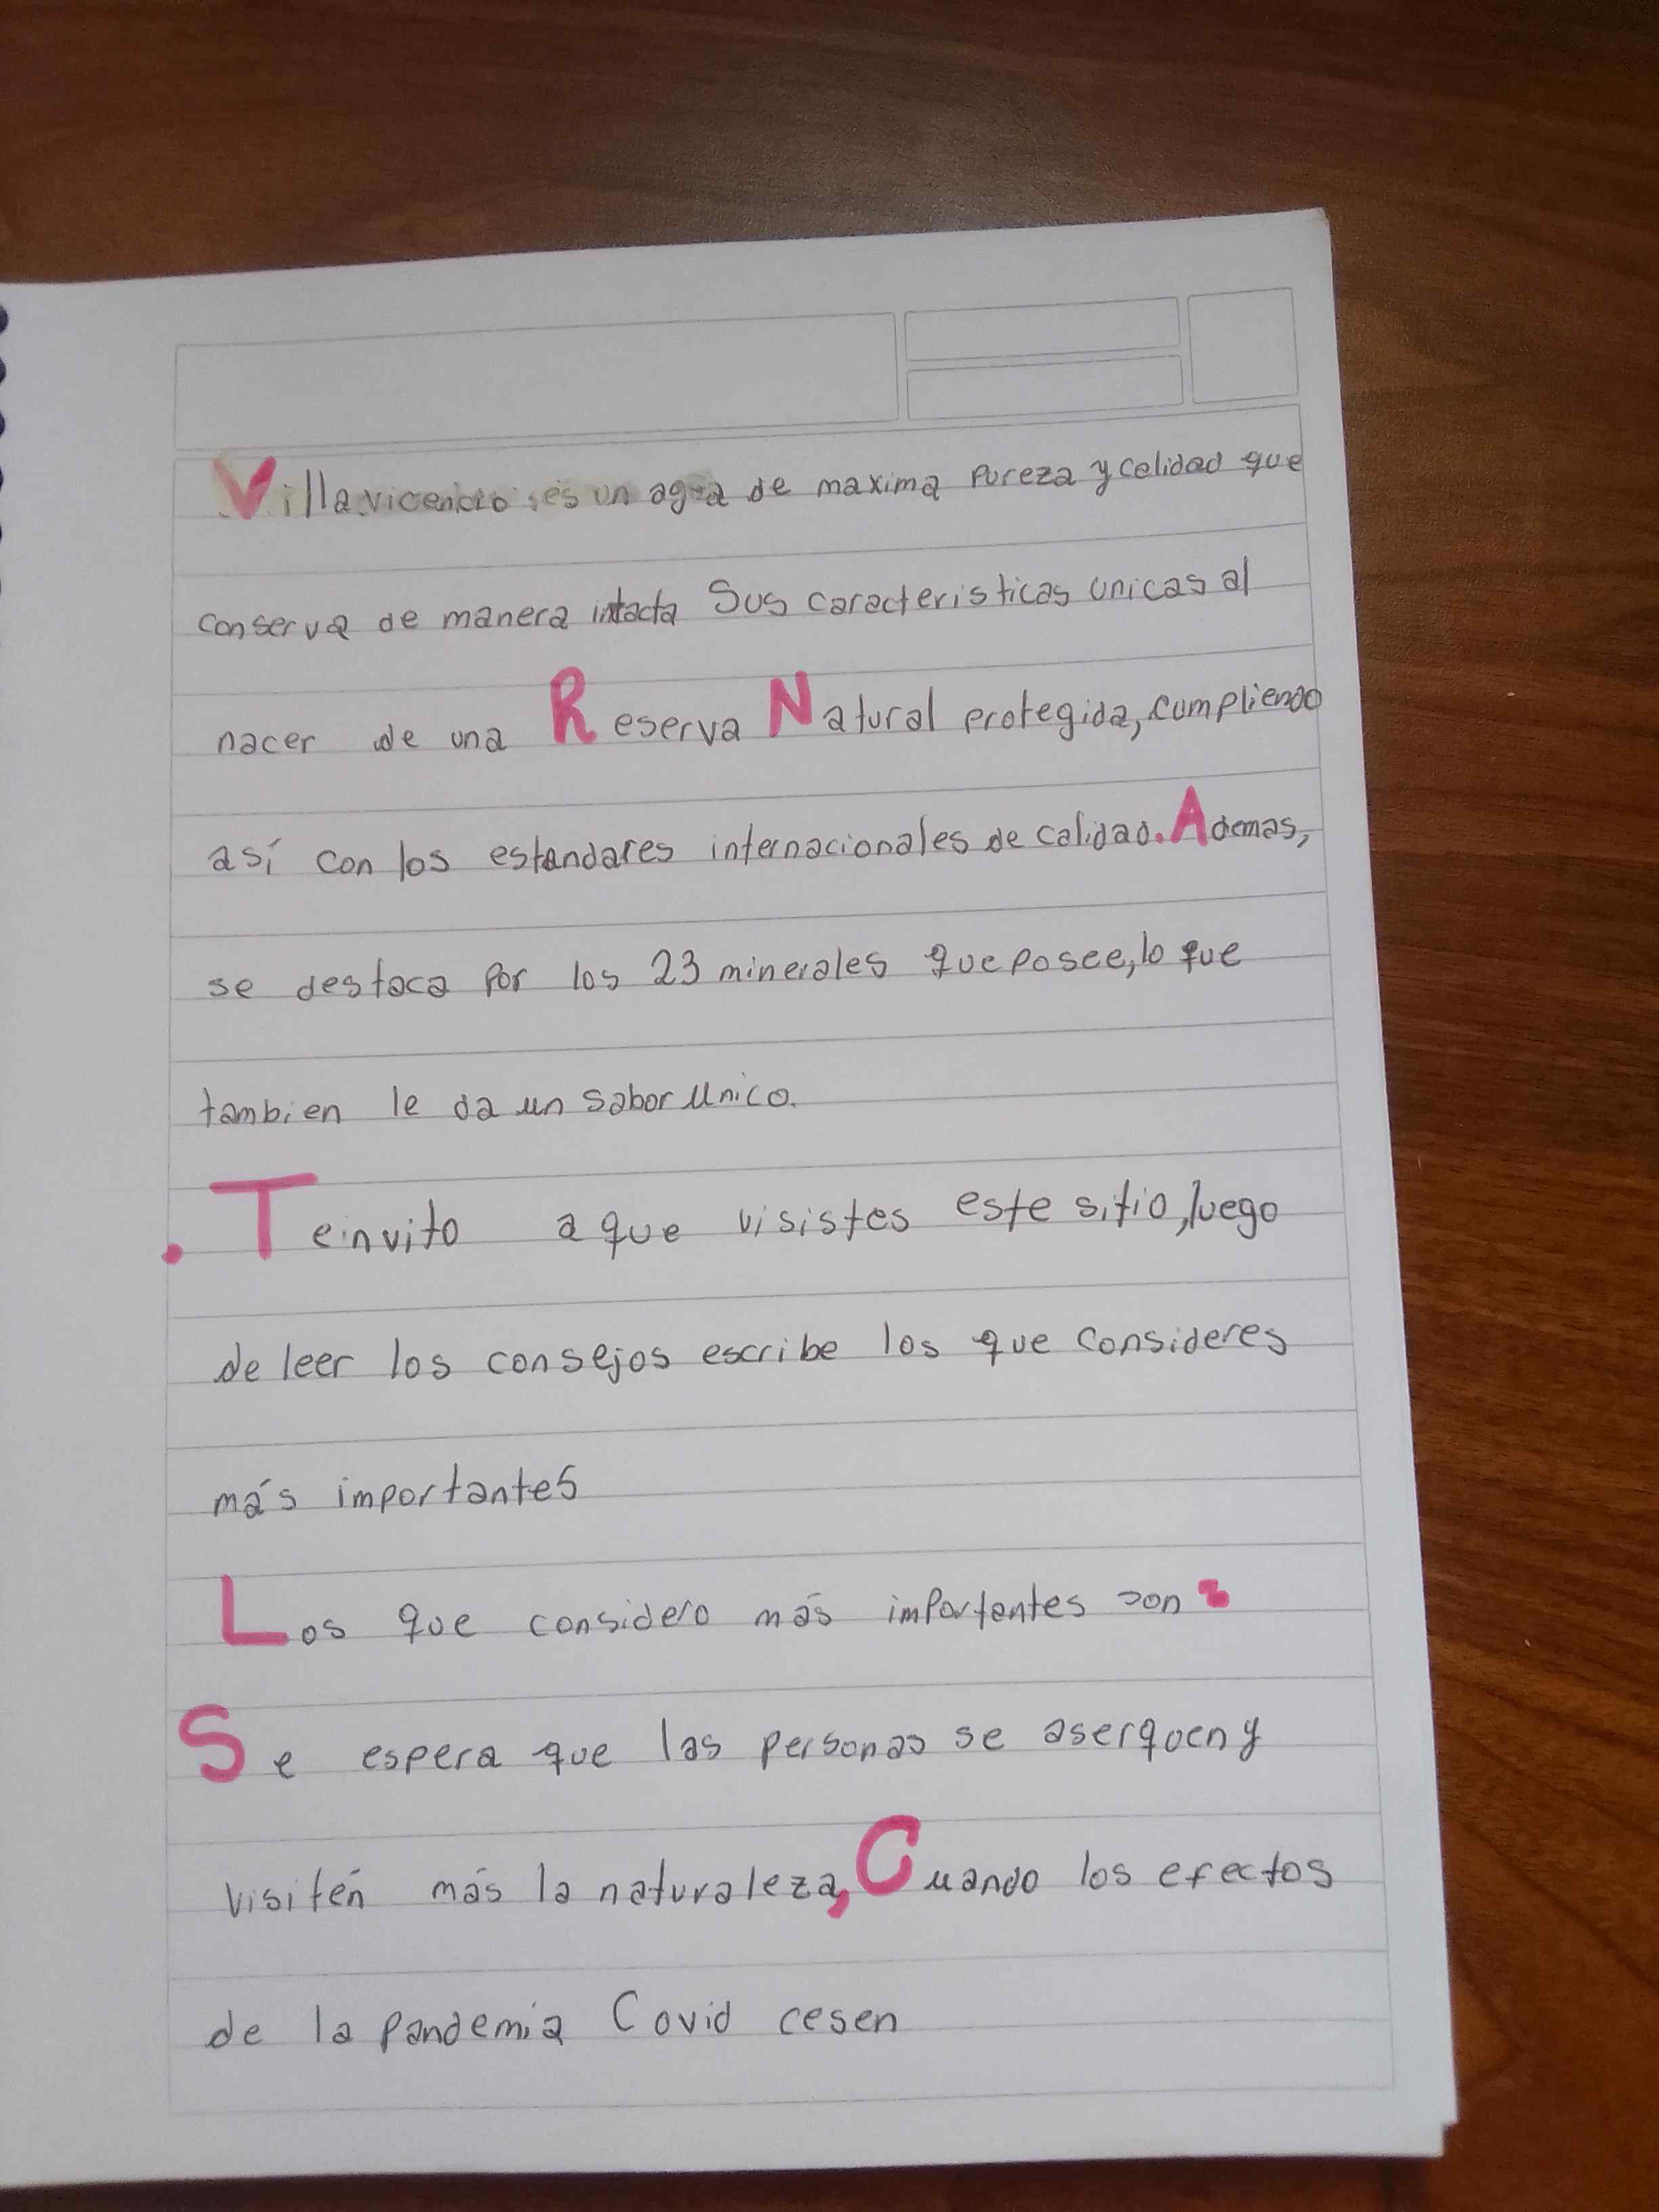 Villavicencio es un agua de maxima pureza y calidad que
conserva de manera intacta Sus caracteristicas unicas al
nacer de una Reserva Natural protegida, cumpliendo
así con los estandares internacionales de calidad. Ademas,
se destaca por los 23 minerales que posee, lo que
tambien le da un sabor unico.
. Te invito a que visistes este sitio, luego
de leer los consejos escribe los que consideres
más importantes
Los que considero más importantes son:
Se espera que las personas se aserquen y
visitén más la naturaleza, Cuando los efectos
de la pandemia Covid cesen